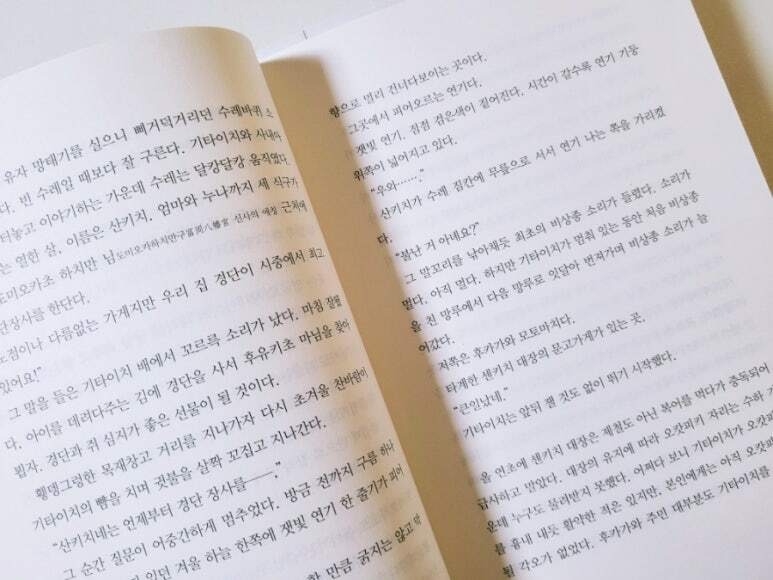 유자 망태기를 실으니 삐거덕거리던 수레바퀴 소
다. 빈 수레일 때보다 잘 구른다. 기타이치와 사내아
터놓고 이야기하는 가운데 수레는 달캉달캉 움직였다.
는 열한 살, 이름은 산키치, 엄마와 누나까지 세 식구가
도미오카초 하치만 님도미오카하치만구富岡八幡宮 신사의 애칭 근처에
단장사를 한단다.
노점이나 다름없는 가게지만 우리 집 경단이 시중에서 최고
있어요!"
그 말을 들은 기타이치 배에서 꼬르륵 소리가 났다. 마침 잘됐
다. 아이를 데려다주는 김에 경단을 사서 후유키초 마님을 찾아
뵙자. 경단과 쥐 심지가 좋은 선물이 될 것이다.
휑뎅그렁한 목재창고 거리를 지나가자 다시 초겨울 찬바람이
기타이치의 뺨을 치며 귓불을 살짝 꼬집고 지나간다.
"산키치네는 언제부터 경단 장사를──."
그 순간 질문이 어중간하게 멈추었다. 방금 전까지 구름 하나
있던 겨울 하늘 한쪽에 잿빛 연기 한 줄기가 피어
만큼 굵지는 않고
향으로 멀리 건너다보이는 곳이다.
그곳에서 피어오르는 연기다.
잿빛 연기. 점점 검은색이 짙어진다. 시간이 갈수록 연기 기둥
위쪽이 넓어지고 있다.
"우와……."
산키치가 수레 짐칸에 무릎으로 서서 연기 나는 쪽을 가리켰
다.
"불난 거 아네요?"
그 말꼬리를 낚아채듯 최초의 비상종 소리가 들렸다. 소리가
멀다. 아직 멀다. 하지만 기타이치가 멈춰 있는 동안 처음 비상종
을 친 망루에서 다음 망루로 잇달아 번져가며 비상종 소리가 늘
어갔다.
저쪽은 후카가와 모토마치다.
타계한 센키치 대장의 문고가게가 있는 곳.
"큰일났네."
기타이치는 앞뒤 잴 것도 없이 뛰기 시작했다.
올 연초에 센키치 대장은 제철도 아닌 복어를 먹다가 중독되어
급사하고 말았다. 대장의 유지에 따라 오캇피키 자리는 수하 가
운데 누구도 물려받지 못했다. 어쩌다 보니 기타이치가 오캇피
를 흉내 내듯 활약한 적은 있지만, 본인에게는 아직 오캇피
될 각오가 없었다. 후카가와 주민 대부분도 기타이치를